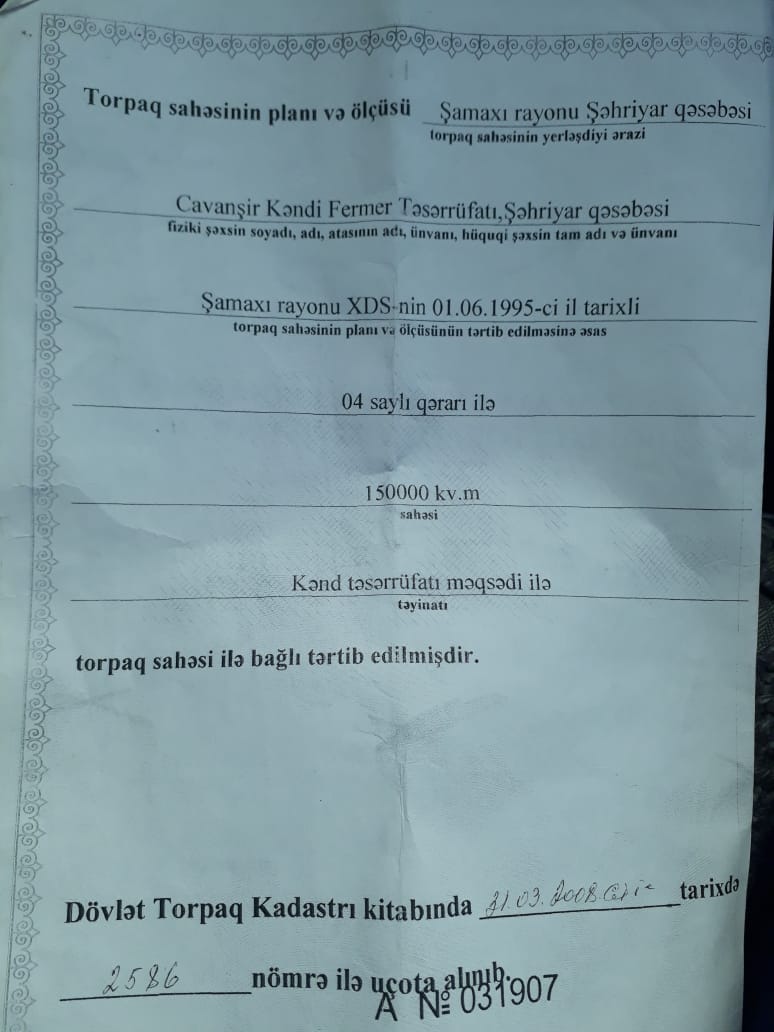 Torpaq sahəsinin planı və ölçüsü Şamaxı rayonu Şəhriyar qəsəbəsi
torpaq sahəsinin yerləşdiyi ərazi
Cavanşir Kəndi Fermer Təsərrüfatı,Şəhriyar qəsəbəsi
fiziki şəxsin soyadı, adı, atasının adı, ünvanı, hüquqi şəxsin tam adı və ünvanı
Şamaxı rayonu XDS-nin 01.06.1995-ci il tarixli
torpaq sahəsinin planı və ölçüsünün tərtib edilməsinə əsas
04 saylı qərarı ilə
150000 kv.m
sahəsi
Kənd təsərrüfatı məqsədi ilə
təyinatı
torpaq sahəsi ilə bağlı tərtib edilmişdir.
Dövlət Torpaq Kadastrı kitabında 21.03.2008 tarixdə
2586 nömrə ilə uçota alınıb.
A № 031907